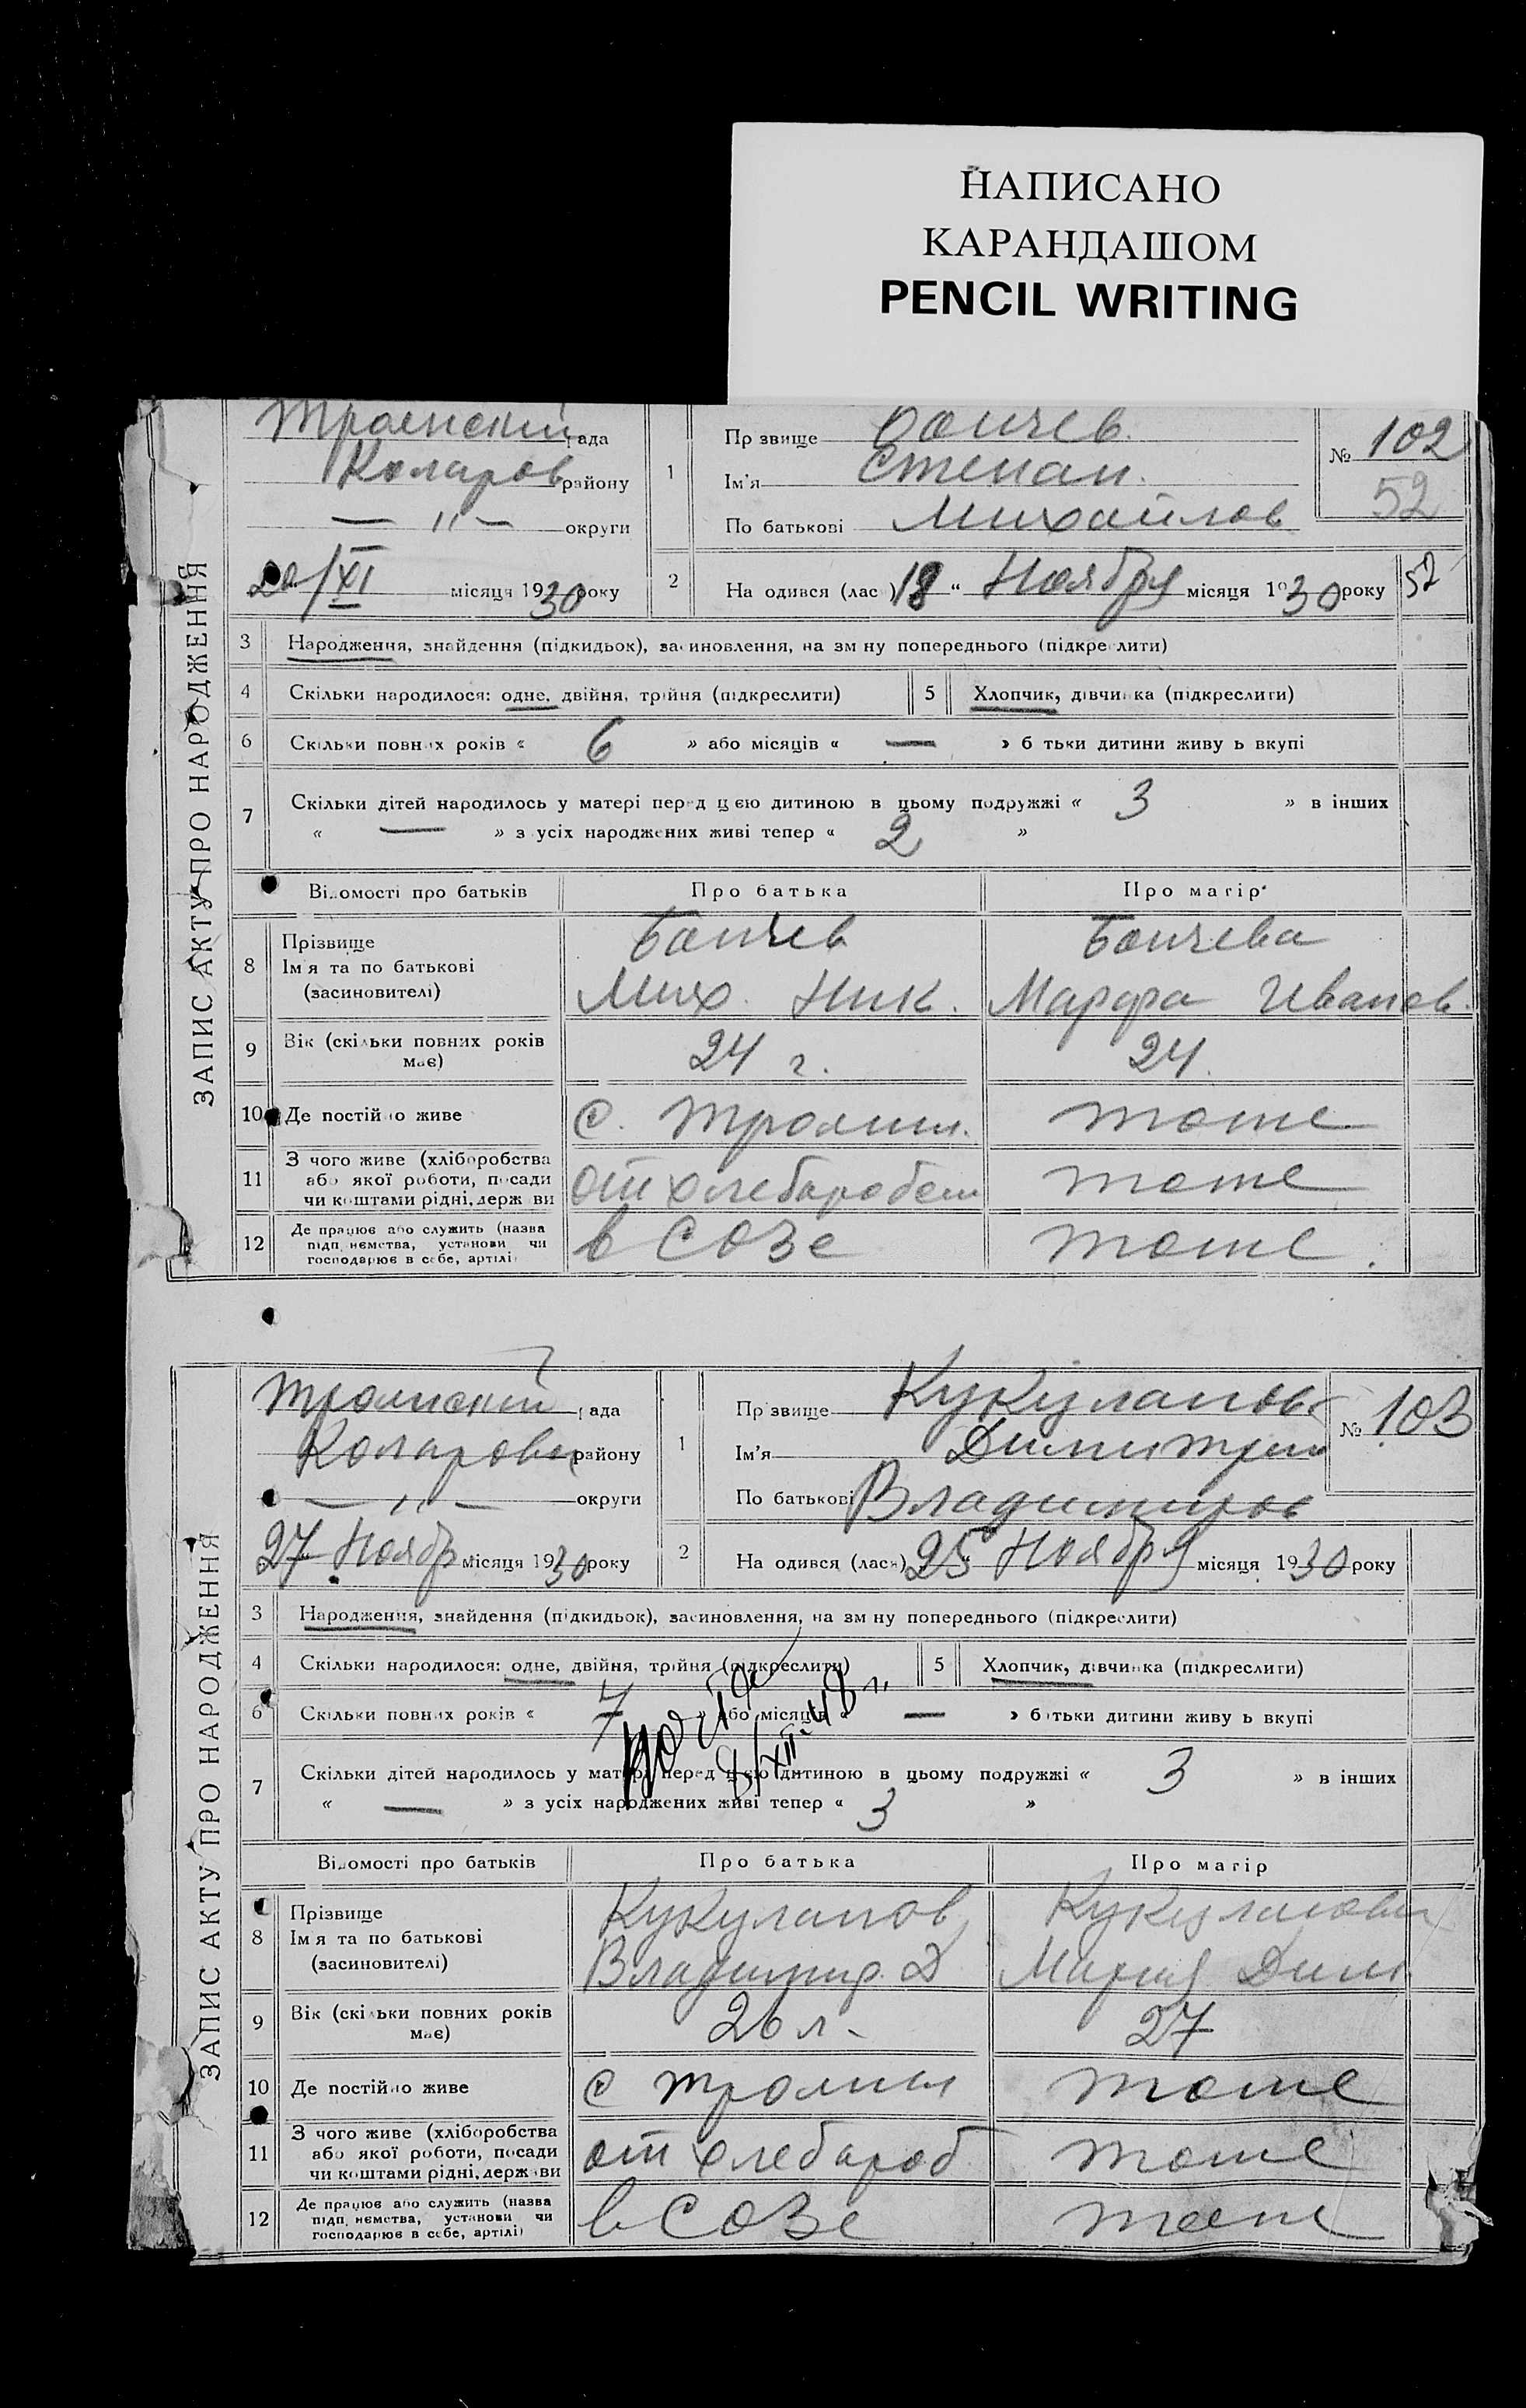 НАПИСАНО
КАРАНДАШОМ
PENCIL WRITING
ЗАПИС АКТУ ПРО НАРОДЖЕННЯ
Троянский рада
Коларов району
— " — округи
20/XI місяця 1930 року
1 Прзвище Банчев
Ім'я Степан.
По батькові Михайлов
№ 102
52
2 На одився (лас ) 18 " Ноября місяця 1930 року
52
3 Народження, знайдення (підкидьок), засиновлення, на зм ну попереднього (підкреслити)
4 Скільки народилося: одне, двійня, трійня (підкреслити) 5 Хлопчик, дівчинка (підкреслити)
6 Скільки повних років « 6 » або місяців « — » б тьки дитини живу ь вкупі
7 Скільки дітей народилось у матері перед цією дитиною в цьому подружжі « 3 » в інших
« — » з усіх народжених живі тепер « 2 »
Відомості про батьків Про батька Про матір
8 Прізвище Банчев Банчева
Ім'я та по батькові
(засиновителі) Мих. Ник. Марфа Иванов.
9 Вік (скільки повних років має) 24 г. 24.
10 Де постійно живе с. Троянн. тоже
11 З чого живе (хліборобства
або якої роботи, посади
чи коштами рідні, держави от хлебаробст тоже
12 Де працює або служить (назва
підп. немства, установи чи
господарює в себе, артілі) в СОЗе тоже
ЗАПИС АКТУ ПРО НАРОДЖЕННЯ
Троянский рада
Коларовск району
— " — округи
27 Ноябр місяця 1930 року
1 Прзвище Кукуланов
Ім'я Димитрий
По батькові Владимиров
№ 103
2 На одився (лася) 25 Ноября місяця 1930 року
3 Народження, знайдення (підкидьок), засиновлення, на зм ну попереднього (підкреслити)
4 Скільки народилося: одне, двійня, трійня (підкреслити) 5 Хлопчик, дівчинка (підкреслити)
6 Скільки повних років « 7 » або місяців « — » батьки дитини живу ь вкупі
8/XII-48 г.
7 Скільки дітей народилось у матері перед цією дитиною в цьому подружжі « 3 » в інших
« — » з усіх народжених живі тепер « 3 »
Відомості про батьків Про батька Про матір
8 Прізвище Кукуланов Кукуланова
Ім'я та по батькові
(засиновителі) Владимир. Д Мария Дим.
9 Вік (скільки повних років має) 26 л. 27
10 Де постійно живе с Троянн тоже
11 З чого живе (хліборобства
або якої роботи, посади
чи коштами рідні, держави от хлебароб тоже
12 Де працює або служить (назва
підп. немства, установи чи
господарює в себе, артілі) в СОЗе тоже